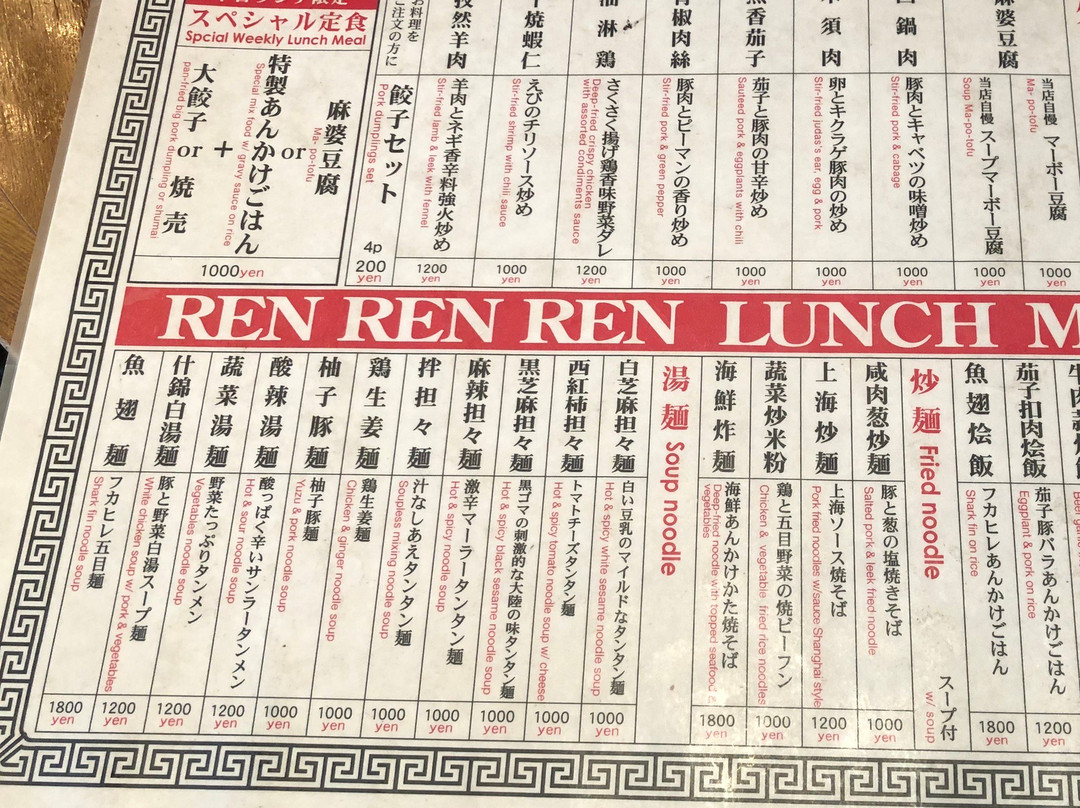 麻婆豆腐
当店自慢 マーボー豆腐
Ma-po-tofu
1000
yen
当店自慢 スープマーボー豆腐
Soup Ma-po-tofu
1000
yen
鍋肉
豚肉とキャベツの味噌炒め
Stir-fried pork & cabage
1000
yen
須肉
卵とキクラゲ豚肉の炒め
Stir-fried judas's ear, egg & pork
1000
yen
香茄子
茄子と豚肉の甘辛炒め
Sauteed pork & eggplants with chili
1000
yen
椒肉絲
豚肉とピーマンの香り炒め
Stir-fried pork & green pepper
1000
yen
淋鶏
さくさく揚げ鶏香味野菜ダレ
Deep-fried crispy chicken
with assorted condiments sauce
1200
yen
焼蝦仁
えびのチリソース炒め
Stir-fried shrimp with chili sauce
1000
yen
然羊肉
羊肉とネギ香辛料強火炒め
Stir-fried lamb & leek with fennel
1200
yen
お料理を
ご注文の方に
餃子セット
Pork dumplings set
4p
200
yen
スペシャル定食
Spcial Weekly Lunch Meal
麻婆豆腐
Ma-po-tofu
or
特製あんかけごはん
Special mix food w/ gravy sauce on rice
+
大餃子 or 焼売
pan-fried big pork dumpling or shumai
1000yen
REN REN REN LUNCH M
茄子扣肉烩飯
茄子豚バラあんかけごはん
Eggplant & pork on rice
1200
yen
魚翅烩飯
フカヒレあんかけごはん
Shark fin on rice
1800
yen
炒麺 Fried noodle
スープ付
w/ soup
咸肉葱炒麺
豚と葱の塩焼きそば
Salted pork & leek fried noodle
1000
yen
上海炒麺
上海ソース焼そば
Pork fried noodles w/sauce Shanghai style
1200
yen
蔬菜炒米粉
鶏と五目野菜の焼ビーフン
Chicken & vegetable fried rice noodles
1000
yen
海鮮炸麺
海鮮あんかけかた焼そば
Deep-fried noodle with topped seafood &
vegetables
1800
yen
湯麺 Soup noodle
白芝麻担々麺
白い豆乳のマイルドなタンタン麺
Hot & spicy white sesame noodle soup
1000
yen
西紅柿担々麺
トマトチーズタンタン麺
Hot & spicy tomato noodle soup w/ cheese
1000
yen
黒芝麻担々麺
黒ゴマの刺激的な大陸の味タンタン麺
Hot & spicy black sesame noodle soup
1000
yen
麻辣担々麺
激辛マーラータンタン麺
Hot & spicy noodle soup
1000
yen
拌担々麺
汁なしあえタンタン麺
Soupless mixing noodle soup
1000
yen
鶏生姜麺
鶏生姜麺
Chicken & ginger noodle soup
1000
yen
柚子豚麺
柚子豚麺
Yuzu & pork noodle soup
1000
yen
酸辣湯麺
酸っぱく辛いサンラータンメン
Hot & sour noodle soup
1000
yen
蔬菜湯麺
野菜たっぷりタンメン
Vegetables noodle soup
1200
yen
什錦白湯麺
豚と野菜白湯スープ麺
White chicken soup w/ pork & vegetables
1200
yen
魚翅麺
フカヒレ五目麺
Shark fin noodle soup
1200
yen
1800
yen